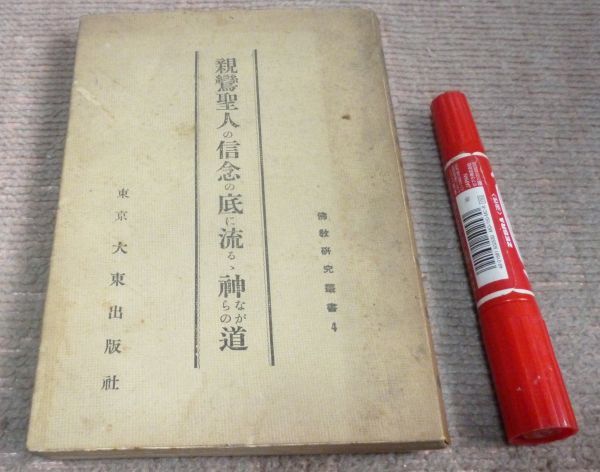 佛敎硏究叢書 4
親鸞聖人の信念の底に流るゝ神ながらの道
東京 大東出版社